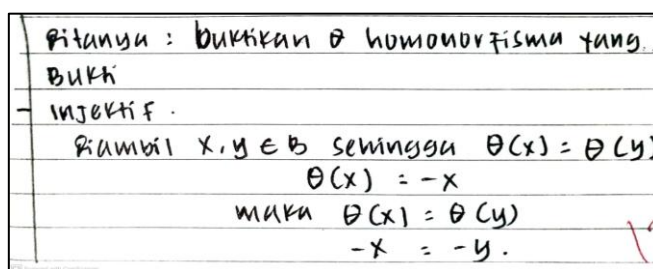 Ditanya : buktikan θ homomorfisma yang
Bukti
- Injektif .
Diambil x, y ∈ B sehingga θ(x) = θ(y)
θ(x) = -x
maka θ(x) = θ(y)
-x = -y .